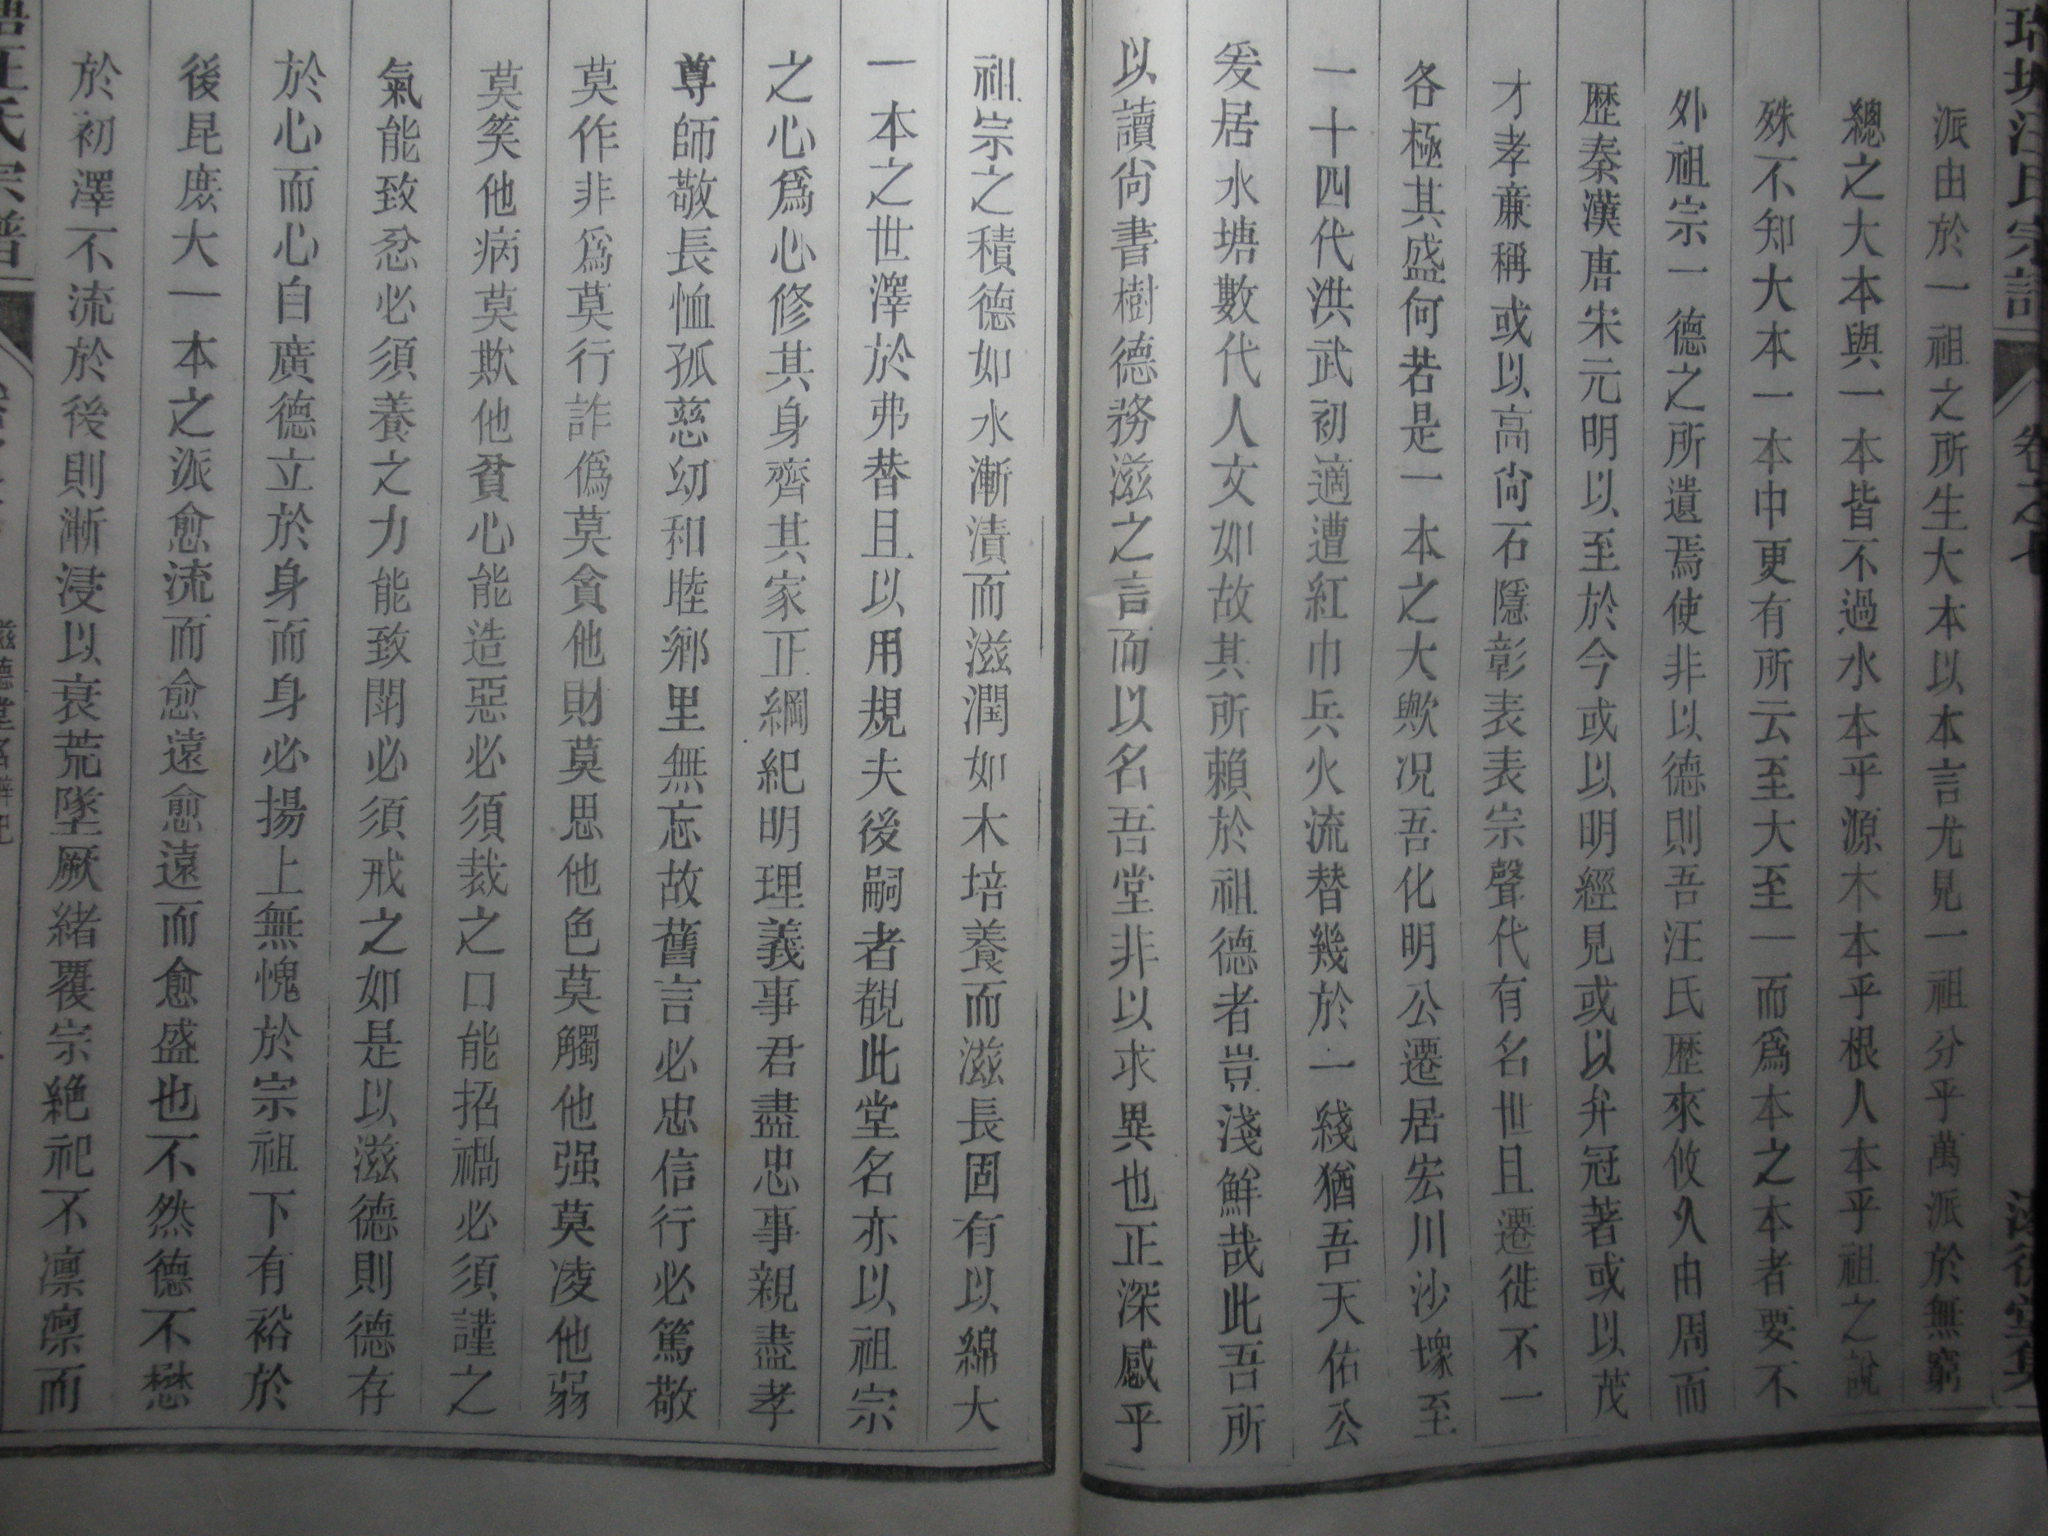 派由於一祖之所生大本以本言尤見一祖分乎萬派於無窮
總之大本與一本皆不過水本乎源木本乎根人本乎祖之說
殊不知大本一本中更有所云至大至一而爲本之本者要不
外祖宗一德之所遺焉使非以德則吾汪氏歴來攸久由周而
歴秦漢唐宋元明以至於今或以明經見或以弁冠著或以茂
才孝亷稱或以高尙石隱彰表表宗聲代有名世且遷徙不一
各極其盛何若是一本之大歟况吾化明公遷居宏川沙塚至
一十四代洪武初適遭紅巾兵火流替幾於一綫猶吾天佑公
爰居水塘數代人文如故其所賴於祖德者豈淺鮮哉此吾所
以讀尙書樹德務滋之言而以名吾堂非以求異也正深感乎
祖宗之積德如水漸漬而滋潤如木培養而滋長固有以綿大
一本之世澤於弗替且以用規夫後嗣者覩此堂名亦以祖宗
之心爲心修其身齊其家正綱紀明理義事君盡忠事親盡孝
尊師敬長恤孤慈幼和睦鄕里無忘故舊言必忠信行必篤敬
莫作非爲莫行詐僞莫貪他財莫思他色莫觸他强莫凌他弱
莫笑他病莫欺他貧心能造惡必須裁之口能招禍必須謹之
氣能致忿必須養之力能致鬬必須戒之如是以滋德則德存
於心而心自廣德立於身而身必揚上無愧於宗祖下有裕於
後昆庶大一本之派愈流而愈遠愈遠而愈盛也不然德不懋
於初澤不流於後則漸浸以衰荒墜厥緒覆宗絶祀不凛凛而
汪氏宗譜
卷之七
滋德堂